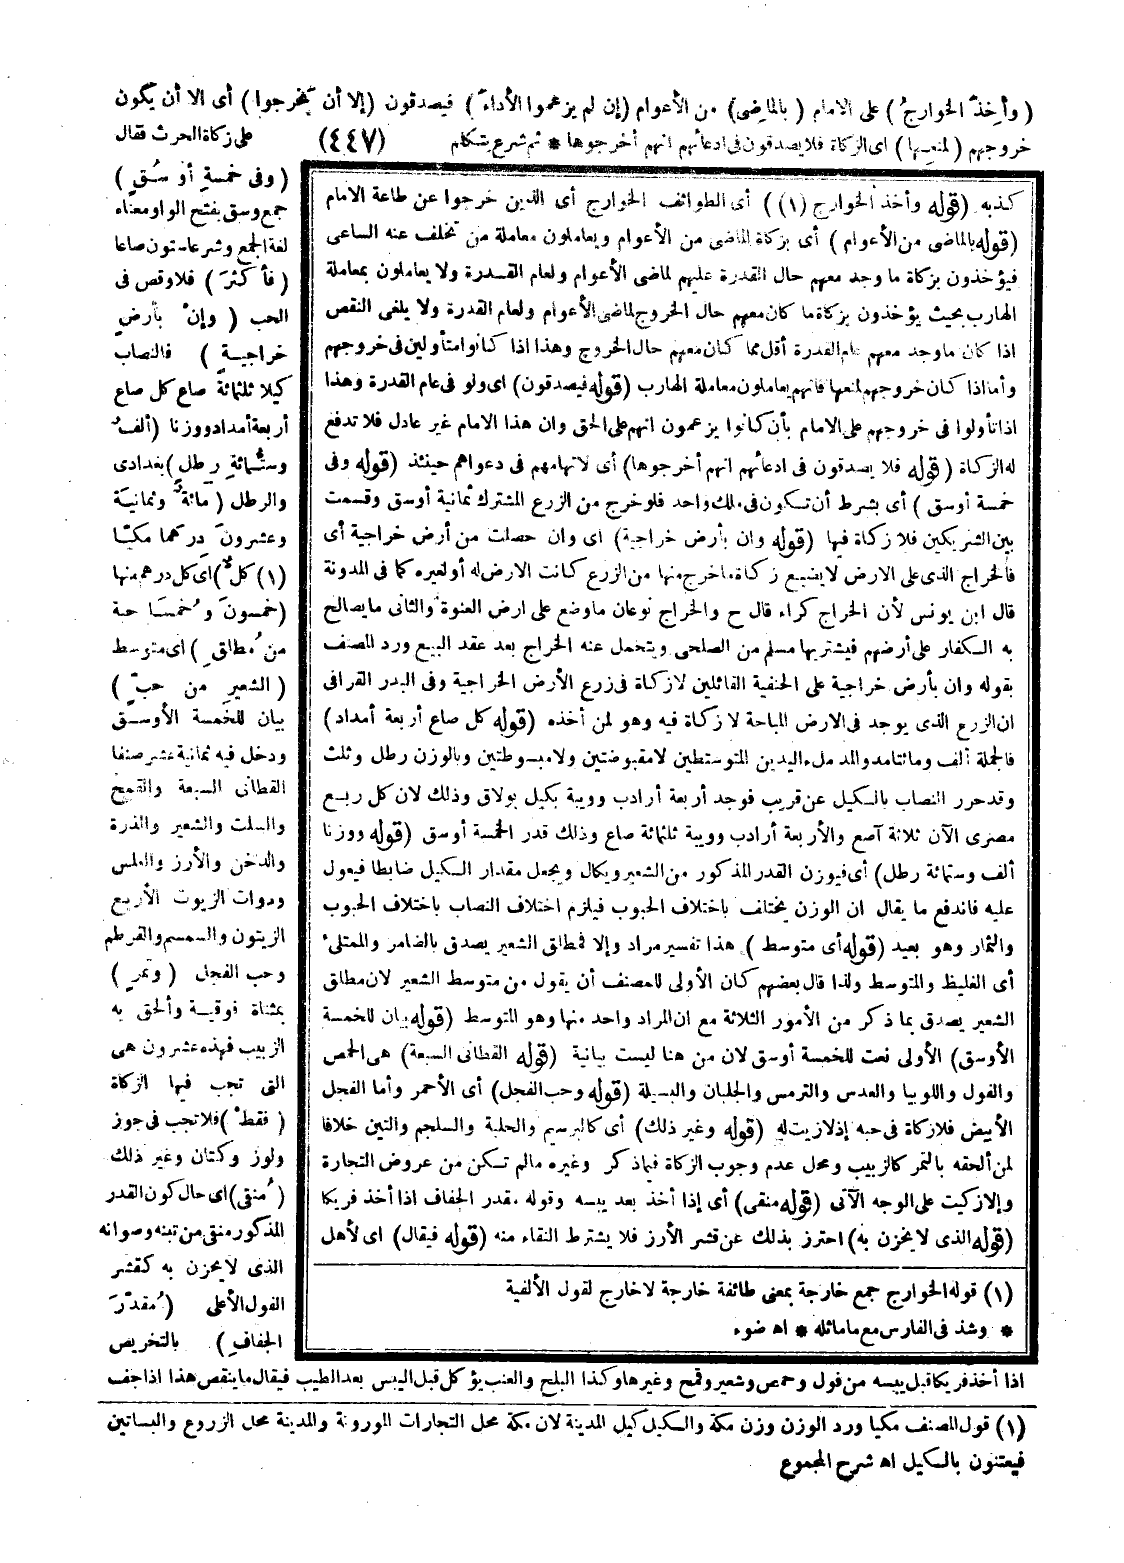 ( وأُخِذَ الخوارجُ ) على الامام ( بالماضِى ) من الأعوام (إن لم يزعموا الأداءَ ) فيصدقون (إلا أن يَخرجوا ) أى الا أن يكون
خروجهم ( لمنعِها ) اى الزكاة فلا يصدقون فى ادعائهم انهم أخرجوها * ثم شرع يتكلم (٤٤٧) على زكاة الحرث فقال
( وفى خمسةِ أوسُقٍ )
جمع وسق بفتح الواو معناه
لغة الجمع وشرعا ستون صاعا
( فأكثرَ ) فلا وقص فى
الحب ( وإنْ بأرضٍ
خراجيةٍ ) فالنصاب
كيلا ثلثمائة صاع كل صاع
أربعة أمداد ووزنا (ألفٌ
وستُّمائةِ رطلٍ ) بغدادى
والرطل ( مائةٌ وثمانيَة
وعشرونَ درهما مكيًا
(١) كلٌّ ) اى كل درهم منها
(خمسونَ وخُمسَا حبة
من مُطلقِ ) اى متوسط
( الشعيرِ من حبٍّ )
بيان للخمسة الأوسق
ودخل فيه ثمانية عشر صنفا
القطانى السبعة والقمح
والسلت والشعير والذرة
والدخن والأرز والعلس
وذوات الزيوت الأربع
الزيتون والسمسم والقرطم
وحب الفجل ( وتمرٍ )
بمثناة فوقية وألحق به
الزبيب فهذه عشرون هى
التى تجب فيها الزكاة
( فقطْ ) فلا تجب فى جوز
ولوز وكتان وغير ذلك
( مُنقى) اى حال كون القدر
المذكور منقى من تبنه وصوانه
الذى لا يخزن به كقشر
الفول الأعلى ( مُقدّرَ
الجفافِ ) بالتخريص
كذبه (قوله وأخذ الخوارج (١) ) أى الطوائف الخوارج أى الذين خرجوا عن طاعة الامام
(قوله بالماضى من الأعوام ) أى بزكاة الماضى من الأعوام ويعاملون معاملة من تخلف عنه الساعى
فيؤخذون بزكاة ما وجد معهم حال القدرة عليهم لماضى الأعوام ولعام القدرة ولا يعاملون بمعاملة
الهارب بحيث يؤخذون بزكاة ما كان معهم حال الخروج لماضى الأعوام ولعام القدرة ولا يلغى النقص
اذا كان ما وجد معهم عام القدرة أقل مما كان معهم حال الخروج وهذا اذا كانوا متأولين فى خروجهم
وأما اذا كان خروجهم لمنعها فانهم يعاملون معاملة الهارب (قوله فيصدقون) اى ولو فى عام القدرة وهذا
اذا تأولوا فى خروجهم على الامام بأن كانوا يزعمون انهم على الحق وان هذا الامام غير عادل فلا تدفع
له الزكاة (قوله فلا يصدقون فى ادعائهم انهم أخرجوها) أى لاتهامهم فى دعواهم حينئذ (قوله وفى
خمسة أوسق ) أى بشرط أن تكون فى ملك واحد فلو خرج من الزرع المشترك ثمانية أوسق وقسمت
بين الشريكين فلا زكاة فيها (قوله وان بأرض خراجية) اى وان حصلت من أرض خراجية أى
فالخراج الذى على الارض لا يضيع زكاة ما خرج منها من الزرع كانت الارض له أو لغيره كما فى المدونة
قال ابن يونس لأن الخراج كراء قال ح والخراج نوعان ما وضع على ارض العنوة والثانى ما يصالح
به الكفار على أرضهم فيشتريها مسلم من الصلحى ويتحمل عنه الخراج بعد عقد البيع ورد المصنف
بقوله وان بأرض خراجية على الحنفية القائلين لا زكاة فى زرع الأرض الخراجية وفى البدر القرافى
ان الزرع الذى يوجد فى الارض المباحة لا زكاة فيه وهو لمن أخذه (قوله كل صاع أربعة أمداد)
فالجملة ألف ومائتا مد والمد ملء اليدين المتوسطين لا مقبوضتين ولا مبسوطتين وبالوزن رطل وثلث
وقد حرر النصاب بالكيل عن قريب فوجد أربعة أرادب وويبة بكيل بولاق وذلك لان كل ربع
مصرى الآن ثلاثة آصع والأربعة أرادب وويبة ثلثمائة صاع وذلك قدر الخمسة أوسق (قوله ووزنا
ألف وستمائة رطل) أى فيوزن القدر المذكور من الشعير ويكال ويجعل مقدار الكيل ضابطا فيعول
عليه فاندفع ما يقال ان الوزن يختلف باختلاف الحبوب فيلزم اختلاف النصاب باختلاف الحبوب
والثمار وهو بعيد (قوله أى متوسط ) هذا تفسير مراد وإلا فمطلق الشعير يصدق بالضامر والممتلئ
أى الغليظ والمتوسط ولذا قال بعضهم كان الأولى للمصنف أن يقول من متوسط الشعير لان مطلق
الشعير يصدق بما ذكر من الأمور الثلاثة مع ان المراد واحد منها وهو المتوسط (قوله بيان للخمسة
الأوسق) الأولى نعت للخمسة أوسق لان من هنا ليست بيانية (قوله القطانى السبعة) هى الحمص
والفول واللوبيا والعدس والترمس والجلبان والبسيلة (قوله وحب الفجل) أى الأحمر وأما الفجل
الأبيض فلا زكاة فى حبه إذ لا زيت له (قوله وغير ذلك) أى كالبرسيم والحلبة والسلجم والتين خلافا
لمن ألحقه بالتمر كالزبيب ومحل عدم وجوب الزكاة فيما ذكر وغيره مالم تكن من عروض التجارة
وإلا زكيت على الوجه الآتى (قوله منقى) أى إذا أخذ بعد يبسه وقوله مقدر الجفاف اذا أخذ فريكا
(قوله الذى لا يخزن به) احترز بذلك عن قشر الأرز فلا يشترط النقاء منه (قوله فيقال) اى لأهل
(١) قوله الخوارج جمع خارجة بمعنى طائفة خارجة لا خارج لقول الألفية
* وشذ فى الفارس مع ما ماثله * اه ضوء
اذا أخذ فريكا قبل يبسه من فول وحمص وشعير وقمح وغيرها وكذا البلح والعنب يؤكل قبل اليبس بعد الطيب فيقال ما ينقص هذا اذا جف
(١) قول المصنف مكيا ورد الوزن وزن مكة والكيل كيل المدينة لان مكة محل التجارات الموزونة والمدينة محل الزروع والبساتين
فيعتنون بالكيل اه شرح المجموع